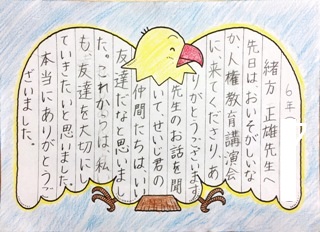 6年(
緒方 正雄先生へ
先日はおいそがしいな
か、人権教育講演会
に来てくださり、あ
りがとうございます。
先生のお話を聞
いて、せいじ君の
仲間たちは、いい
友達だなと思いまし
た。これからは、私
も、友達を大切にし
ていきたいと思いました。
本当にありがとうご
ざいました。